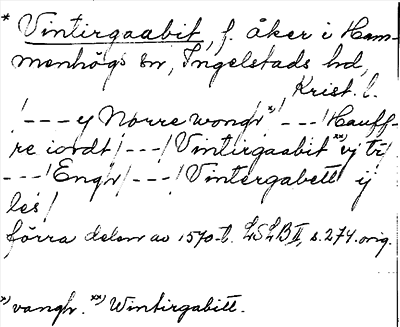 * Vintirgaabit, f. åker i Ham-
menhögs sn, Ingelstads hd,
Krist. l.
/--- y Norre wongr x) /---/ Hauff-
re iordt /---/ Vintirgaabit xx) vj tr/
---/ Engr /---/ Vintergabett ij
les/
förra delen av 1570-t. LSLB II, s. 274. orig.
x) vangh. xx) Wintirgabitt.